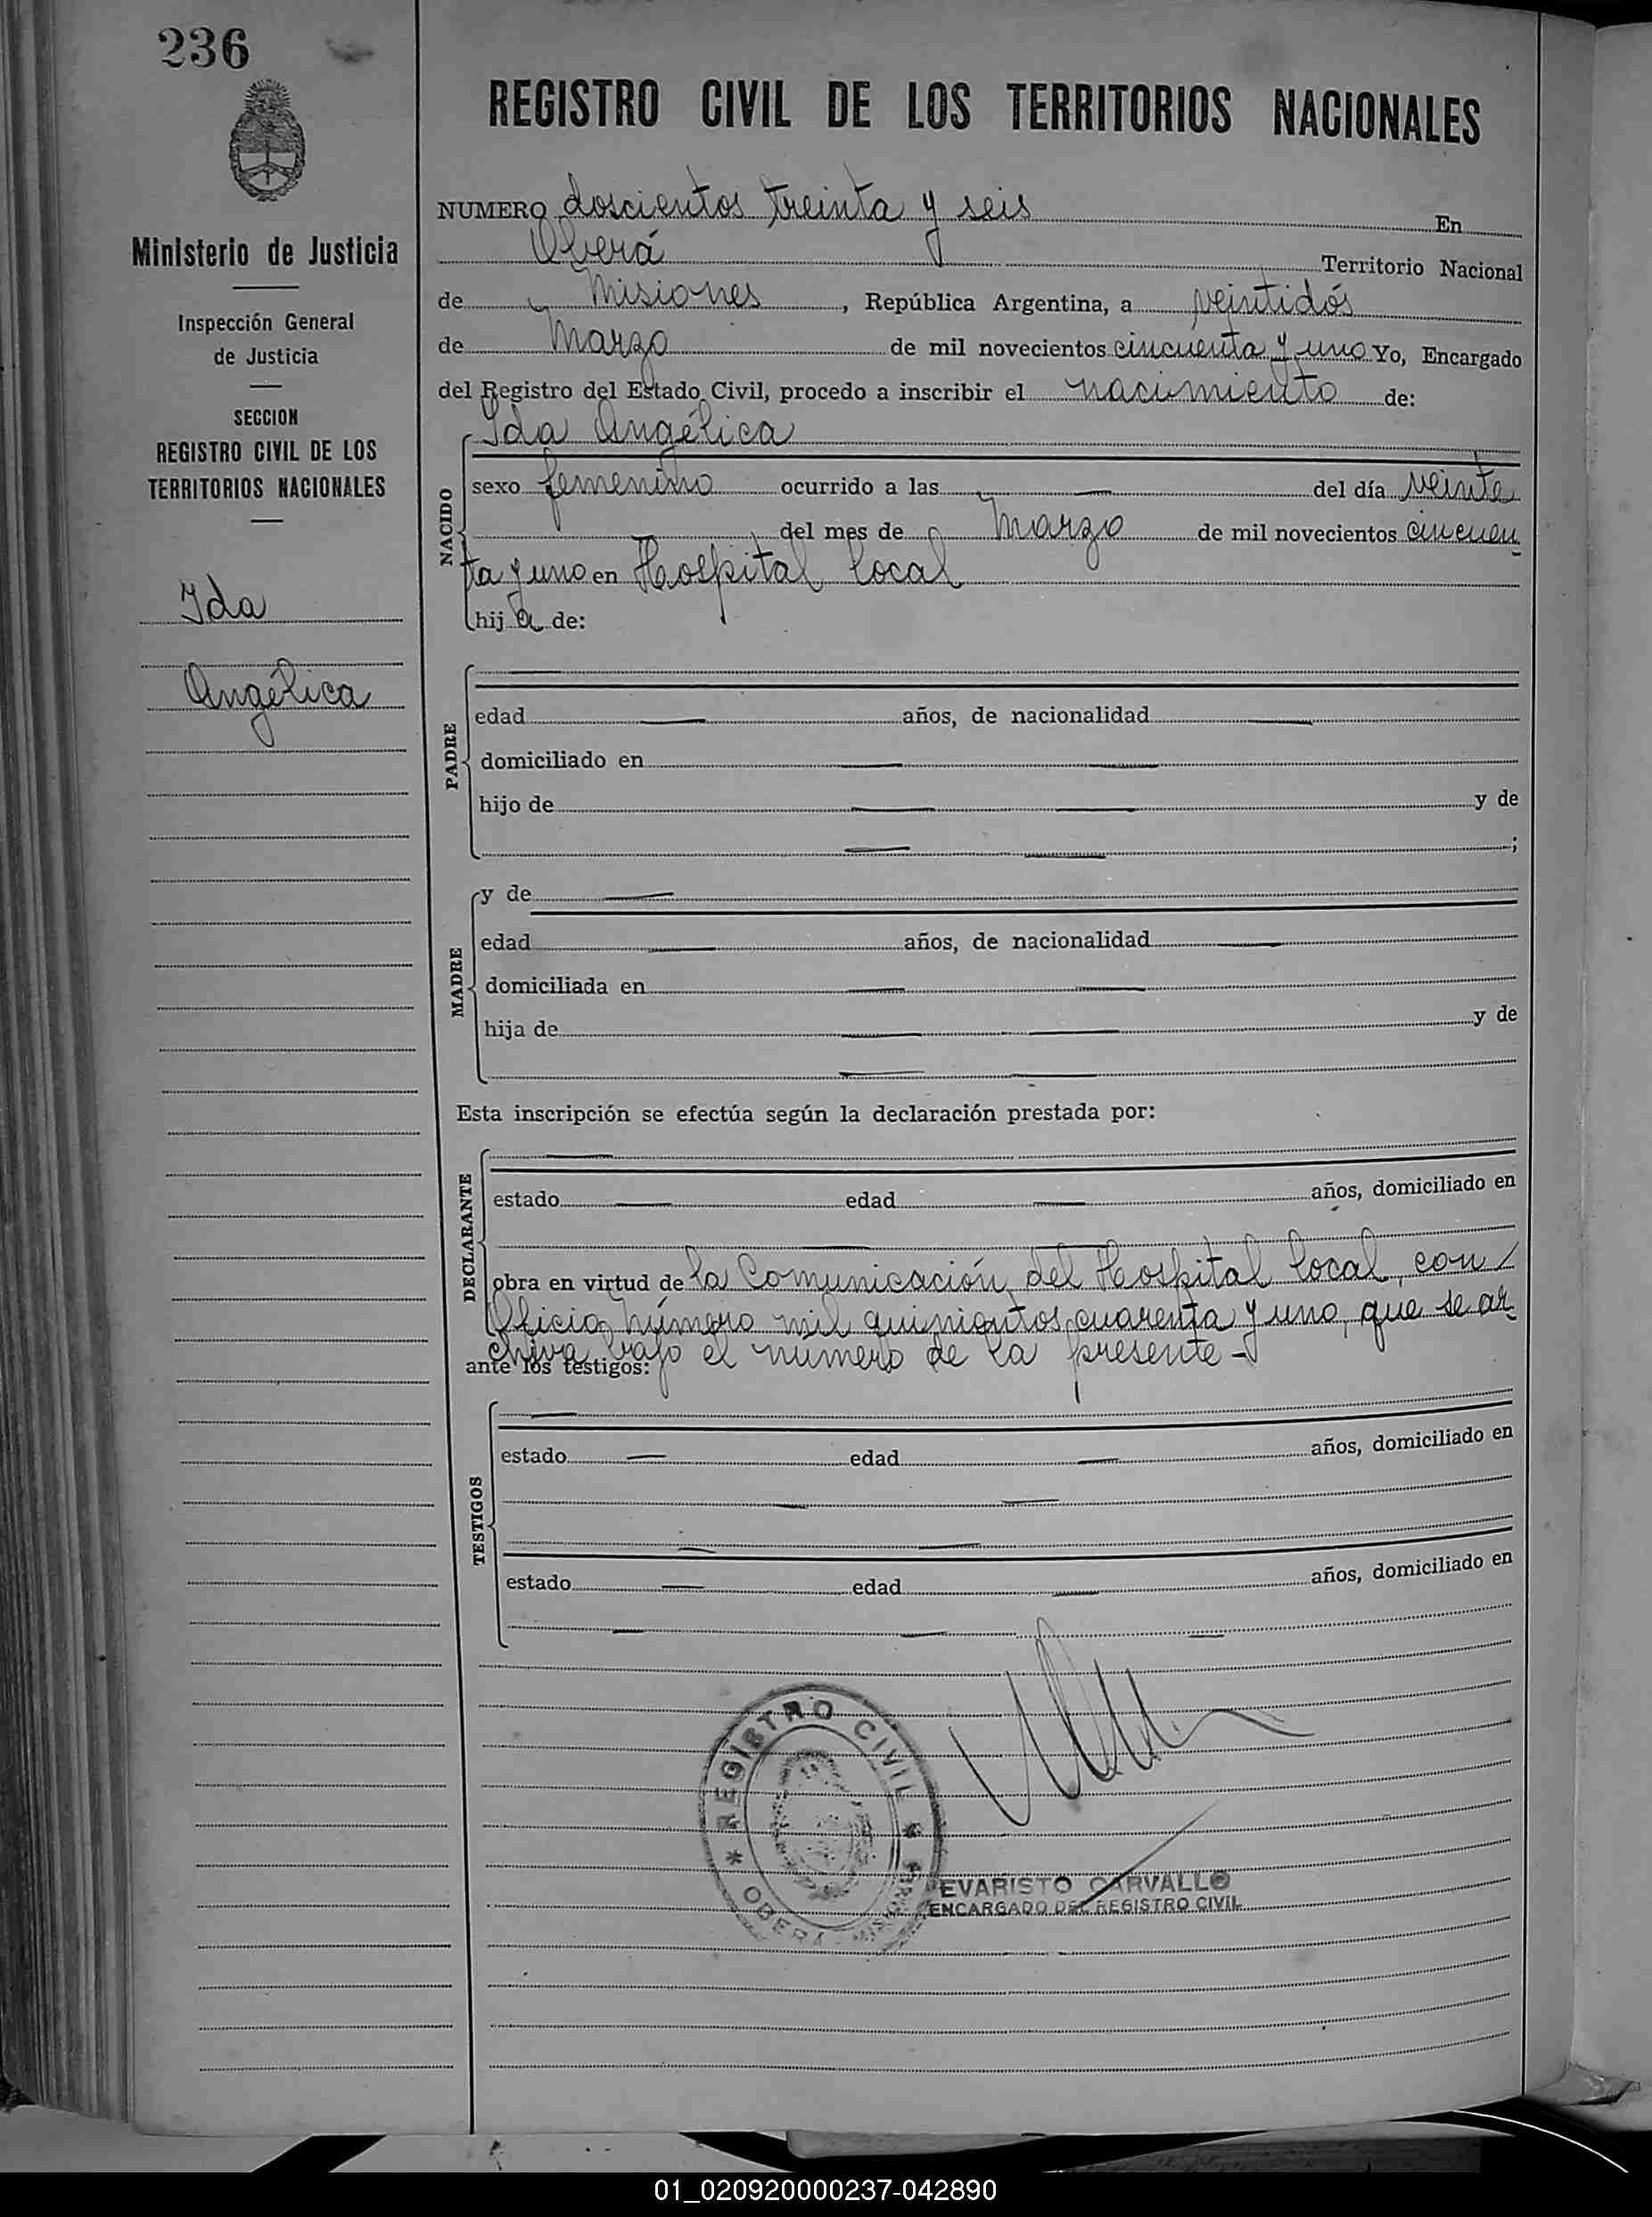 236
Ministerio de Justicia
Inspección General
de Justicia
SECCION
REGISTRO CIVIL DE LOS
TERRITORIOS NACIONALES
Ida
Angélica
REGISTRO CIVIL DE LOS TERRITORIOS NACIONALES
NUMERO doscientos treinta y seis En
Oberá Territorio Nacional
de Misiones, República Argentina, a veintidós
de Marzo de mil novecientos cincuenta y uno Yo, Encargado
del Registro del Estado Civil, procedo a inscribir el nacimiento de:
Ida Angélica
NACIDO
sexo femenino ocurrido a las — del día veinte
del mes de Marzo de mil novecientos cincuen
ta y uno en Hospital local
hija de:
PADRE
edad — años, de nacionalidad —
domiciliado en — —
hijo de — — y de
— — ;
MADRE
y de —
edad — años, de nacionalidad —
domiciliada en — —
hija de — — y de
— —
Esta inscripción se efectúa según la declaración prestada por:
DECLARANTE
—
estado — edad — años, domiciliado en
—
obra en virtud de la Comunicación del Hospital local, con
Oficio número mil quinientos cuarenta y uno, que se ar
chiva bajo el número de la presente -
ante los testigos:
TESTIGOS
—
estado — edad — años, domiciliado en
— —
— —
estado — edad — años, domiciliado en
— — —
* REGISTRO CIVIL *
OBERA
EVARISTO CARVALLO
ENCARGADO DEL REGISTRO CIVIL
01_020920000237-042890